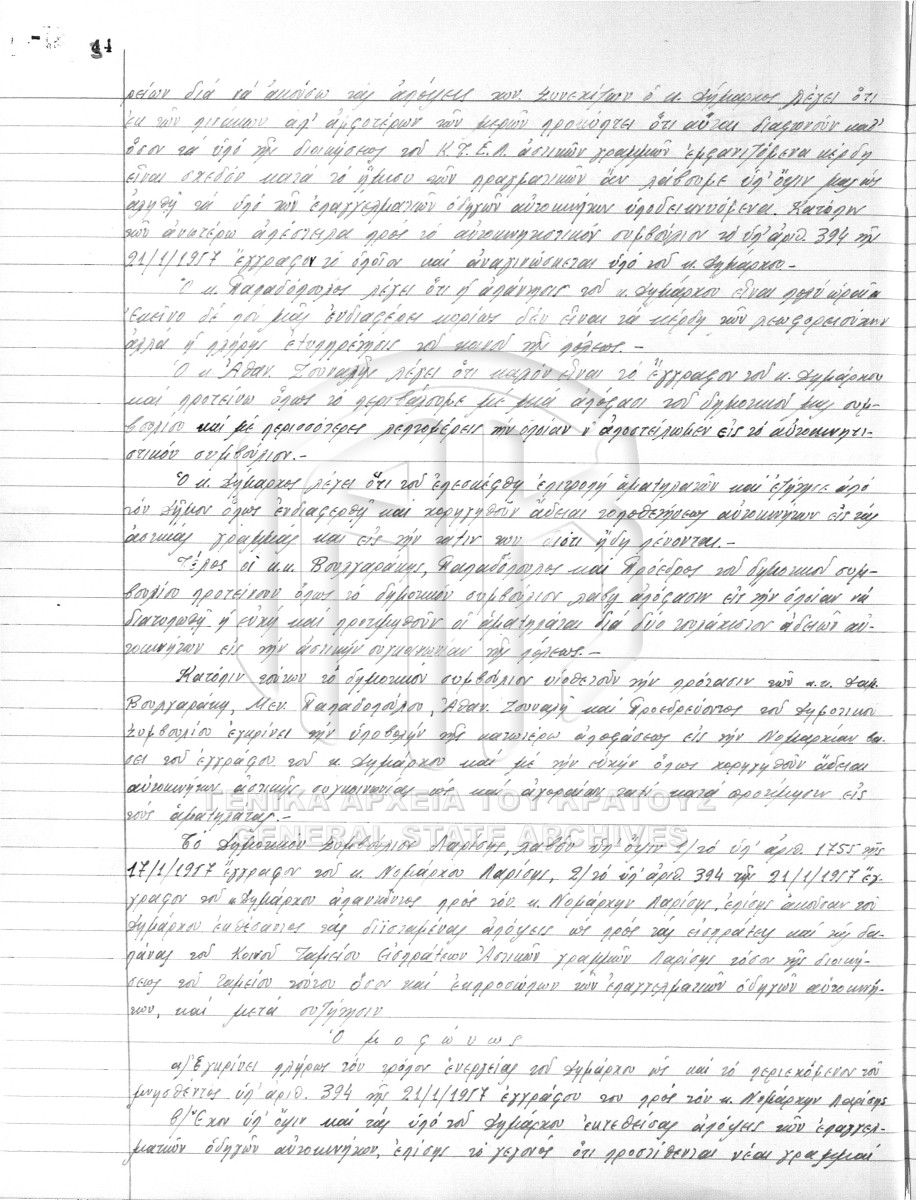 44
ρείων διά νά ἀκούσω τάς ἀπόψεις των. Συνεχίζων ὁ κ. Δήμαρχος λέγει ὅτι
ἐκ τῶν πινάκων ἀπ' ἀμφοτέρων τῶν μερῶν προκύπτει ὅτι αὗται διαφωνοῦν καθ'
ὅσον τά ὑπό τῆς διοικήσεως τοῦ Κ.Τ.Ε.Λ. ἀστικῶν γραμμῶν ἐμφανιζόμενα κέρδη
εἶναι σχεδόν κατά τό ἥμισυ τῶν πραγματικῶν ἄν λάβουμε ὑπ' ὄψιν μας ὡς
ἀληθῆ τά ὑπό τῶν ἐπαγγελματιῶν ὁδηγῶν αὐτοκινήτων ὑποδεικνυόμενα. Κατόπιν
τῶν ἀνωτέρω ἀπέστειλα πρός τό αὐτοκινητιστικόν συμβούλιον τό ὑπ' ἀριθ. 394 τῆς
21/1/1957 ἔγγραφον τό ὁποῖον καί ἀναγινώσκεται ὑπό τοῦ κ. Δημάρχου.-
Ὁ κ. Παπαδόπουλος λέγει ὅτι ἡ ἀπάντησις τοῦ κ. Δημάρχου εἶναι πολύ ὡραία
ἐκεῖνο δέ πού μᾶς ἐνδιαφέρει κυρίως δέν εἶναι τά κέρδη τῶν λεωφορειούχων
ἀλλά ἡ πλήρης ἐξυπηρέτησις τοῦ κοινοῦ τῆς πόλεως.-
Ὁ κ. Ἀθαν. Ζουναλῆς λέγει ὅτι καλόν εἶναι τό ἔγγραφον τοῦ κ. Δημάρχου
καί προτείνω ὅπως τό περιβάλουμε με μιά ἀπόφασι τοῦ δημοτικοῦ μας συμ-
βουλίου καί μέ περισσότερες λεπτομέρειες τήν ὁποίαν ν' ἀποστείλωμεν εἰς τό αὐτοκινητι-
στικόν συμβούλιον.-
Ὁ κ. Δήμαρχος λέγει ὅτι τόν ἐπεσκέφθη ἐπιτροπή ἁμαξηλατῶν καί ἐζήτησε ἀπό
τόν Δῆμον ὅπως ἐνδιαφερθῆ καί χορηγηθοῦν ἄδειαι τοποθετήσεως αὐτοκινήτων εἰς τάς
ἀστικάς γραμμάς καί εἰς τήν τάξιν των διότι ἤδη πένονται.-
Τέλος οἱ κ.κ. Βουλγαράκης, Παπαδόπουλος καί Πρόεδρος τοῦ δημοτικοῦ συμ-
βουλίου προτείνουν ὅπως τό δημοτικόν συμβούλιον λάβη ἀπόφασιν εἰς τήν ὁποίαν νά
διατυπωθῆ ἡ εὐχή καί προτιμηθοῦν οἱ ἁμαξηλάται διά δύο τουλάχιστον ἀδειῶν αὐ-
τοκινήτων εἰς τήν ἀστικήν συγκοινωνίαν τῆς πόλεως.-
Κατόπιν τούτων τό δημοτικόν συμβούλιον υἱοθετοῦν τήν πρότασιν τῶν κ.κ. Δαμ.
Βουλγαράκη, Μεν. Παπαδοπούλου, Ἀθαν. Ζουναλῆ καί Προεδρεύοντος τοῦ Δημοτικοῦ
Συμβουλίου ἐγκρίνει τήν ὑποβολήν τῆς κατωτέρω ἀποφάσεως εἰς τήν Νομαρχίαν βά-
σει τοῦ ἐγγράφου τοῦ κ. Δημάρχου καί μέ τήν εὐχήν ὅπως χορηγηθοῦν ἄδειαι
αὐτοκινήτων ἀστικῆς συγκοινωνίας ὡς καί ἀγοραίων ταξί κατά προτίμησιν εἰς
τούς ἁμαξηλάτας.-
ΓΕΝΙΚΑ ΑΡΧΕΙΑ ΤΟΥ ΚΡΑΤΟΥΣ
GENERAL STATE ARCHIVES
Τό Δημοτικόν Συμβούλιον Λαρίσης, λαβόν ὑπ' ὄψιν 1/τό ὑπ' ἀριθ. 1755 τῆς
17/1/1957 ἔγγραφον τοῦ κ. Νομάρχου Λαρίσης, 2/τό ὑπ' ἀριθ. 394 τῆς 21/1/1957 ἔγ-
γραφον τοῦ κ. Δημάρχου ἀπαντῶντος πρός τόν κ. Νομάρχην Λαρίσης, ἐπίσης ἀκοῦσαν τοῦ
Δημάρχου ἐκθέσαντος τάς διϊσταμένας ἀπόψεις ὡς πρός τάς εἰσπράξεις καί τάς δα-
πάνας τοῦ Κοινοῦ Ταμείου Εἰσπράξεων Ἀστικῶν γραμμῶν Λαρίσης τόσον τῆς διοική-
σεως τοῦ Ταμείου τούτου ὅσον καί ἐκπροσώπων τῶν ἐπαγγελματιῶν ὁδηγῶν αὐτοκινή-
των, καί μετά συζήτησιν
Ὁ μ ο φ ώ ν ω ς
α/ Ἐγκρίνει πλήρως τόν τρόπον ἐνεργείας τοῦ Δημάρχου ὡς καί τό περιεχόμενον τοῦ
μνησθέντος ὑπ' ἀριθ. 394 τῆς 21/1/1957 ἐγγράφου του πρός τόν κ. Νομάρχην Λαρίσης
β/ Ἔχον ὑπ' ὄψιν καί τάς ὑπό τοῦ Δημάρχου ἐκτεθείσας ἀπόψεις τῶν ἐπαγγελ-
ματιῶν ὁδηγῶν αὐτοκινήτων, ἐπίσης τό γεγονός ὅτι προστίθενται νέαι γραμμαί